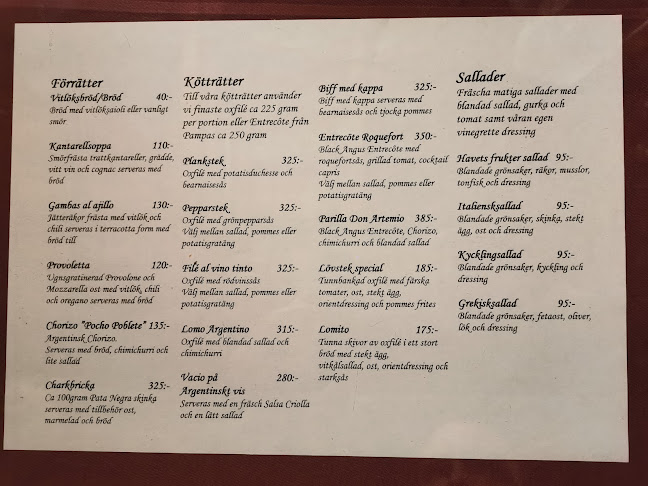 Förrätter
Vitlöksbröd/Bröd 40:-
Bröd med vitlöksaioli eller vanligt
smör
Kantarellsoppa 110:-
Smörfrästa trattkantareller, grädde,
vitt vin och cognac serveras med
bröd
Gambas al ajillo 130:-
Jätteräkor frästa med vitlök och
chili serveras i terracotta form med
bröd till
Provoletta 120:-
Ugnsgratinerad Provolone och
Mozzarella ost med vitlök, chili
och oregano serveras med bröd
Chorizo "Pocho Poblete" 135:-
Argentinsk Chorizo.
Serveras med bröd, chimichurri och
lite sallad
Charkbricka 325:-
Ca 100gram Pata Negra skinka
serveras med tillbehör ost,
marmelad och bröd
Kötträtter
Till våra kötträtter använder
vi finaste oxfilé ca 225 gram
per portion eller Entrecôte från
Pampas ca 250 gram
Plankstek 325:-
Oxfilé med potatisduchesse och
bearnaisesås
Pepparstek 325:-
Oxfilé med grönpepparsås
Välj mellan sallad, pommes eller
potatisgratäng
Filé al vino tinto 325:-
Oxfilé med rödvinssås
Välj mellan sallad, pommes eller
potatisgratäng
Lomo Argentino 315:-
Oxfilé med blandad sallad och
chimichurri
Vacio på 280:-
Argentinskt vis
Serveras med en fräsch Salsa Criolla
och en lätt sallad
Biff med kappa 325:-
Biff med kappa serveras med
bearnaisesås och tjocka pommes
Entrecôte Roquefort 350:-
Black Angus Entrecôte med
roquefortsås, grillad tomat, cocktail
capris
Välj mellan sallad, pommes eller
potatisgratäng
Parilla Don Artemio 385:-
Black Angus Entrecôte, Chorizo,
chimichurri och blandad sallad
Lövstek special 185:-
Tunnbankad oxfilé med färska
tomater, ost, stekt ägg,
orientdressing och pommes frites
Lomito 175:-
Tunna skivor av oxfilé i ett stort
bröd med stekt ägg,
vitkålsallad, ost, orientdressing och
starksås
Sallader
Fräscha matiga sallader med
blandad sallad, gurka och
tomat samt våran egen
vinegrette dressing
Havets frukter sallad 95:-
Blandade grönsaker, räkor, musslor,
tonfisk och dressing
Italiensksallad 95:-
Blandade grönsaker, skinka, stekt
ägg, ost och dressing
Kycklingsallad 95:-
Blandade grönsaker, kyckling och
dressing
Grekisksallad 95:-
Blandade grönsaker, fetaost, oliver,
lök och dressing